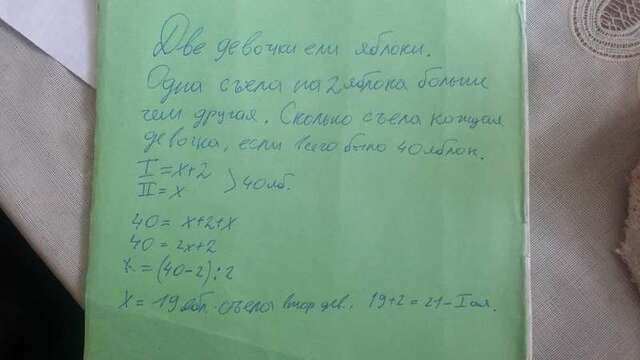 Две девочки ели яблоки.
Одна съела на 2 яблока больше
чем другая. Сколько съела каждая
девочка, если всего было 40 яблок.
I = x+2
II = x > 40 яб.
40 = x+2+x
40 = 2x+2
x = (40-2):2
x = 19 ябл. съела втор. дев. 19+2 = 21 - I ая.